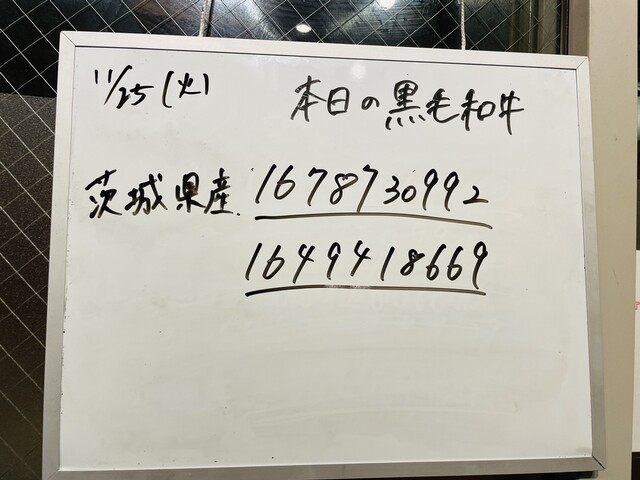 11/25(火) 本日の黒毛和牛
茨城県産. 1678730992
1649418669